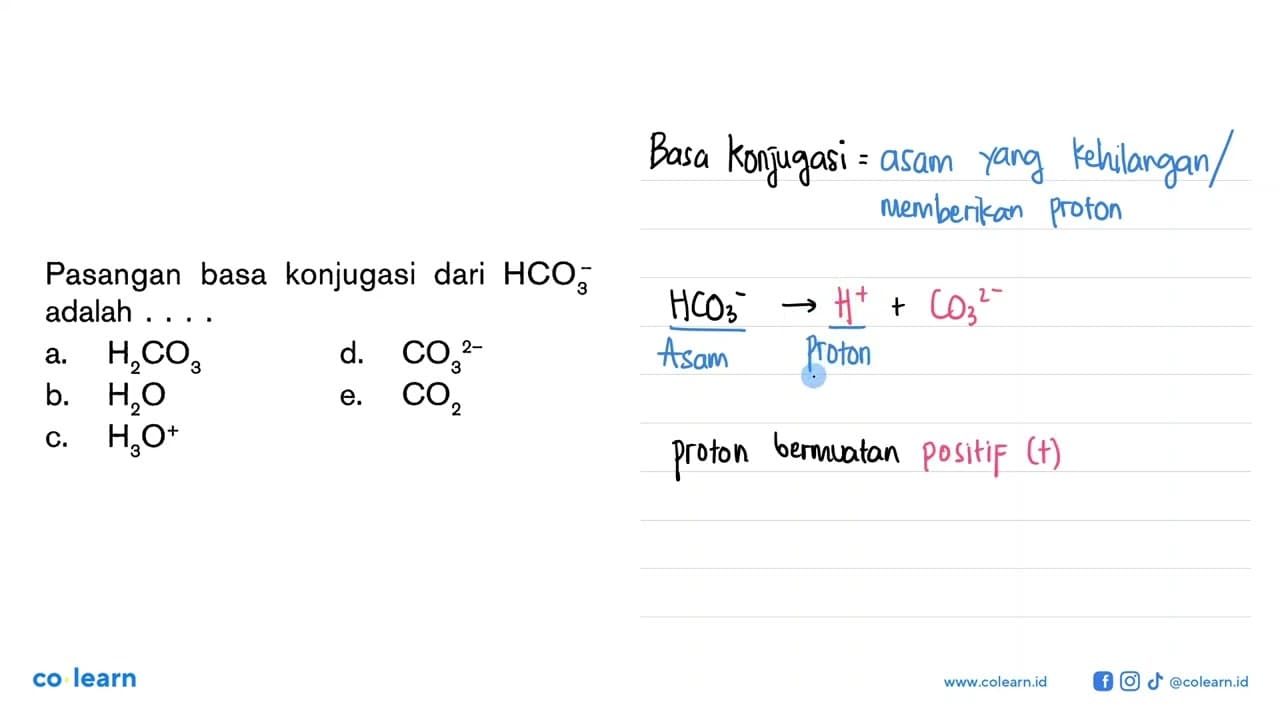 Pasangan basa konjugasi dari HCO₃⁻
adalah . . . .
a. H₂CO₃
b. H₂O
c. H₃O⁺
d. CO₃²⁻
e. CO₂
Basa Konjugasi = asam yang kehilangan/
memberikan proton
HCO₃⁻ → H⁺ + CO₃²⁻
Asam Proton
proton bermuatan positif (+)
co learn
www.colearn.id @colearn.id